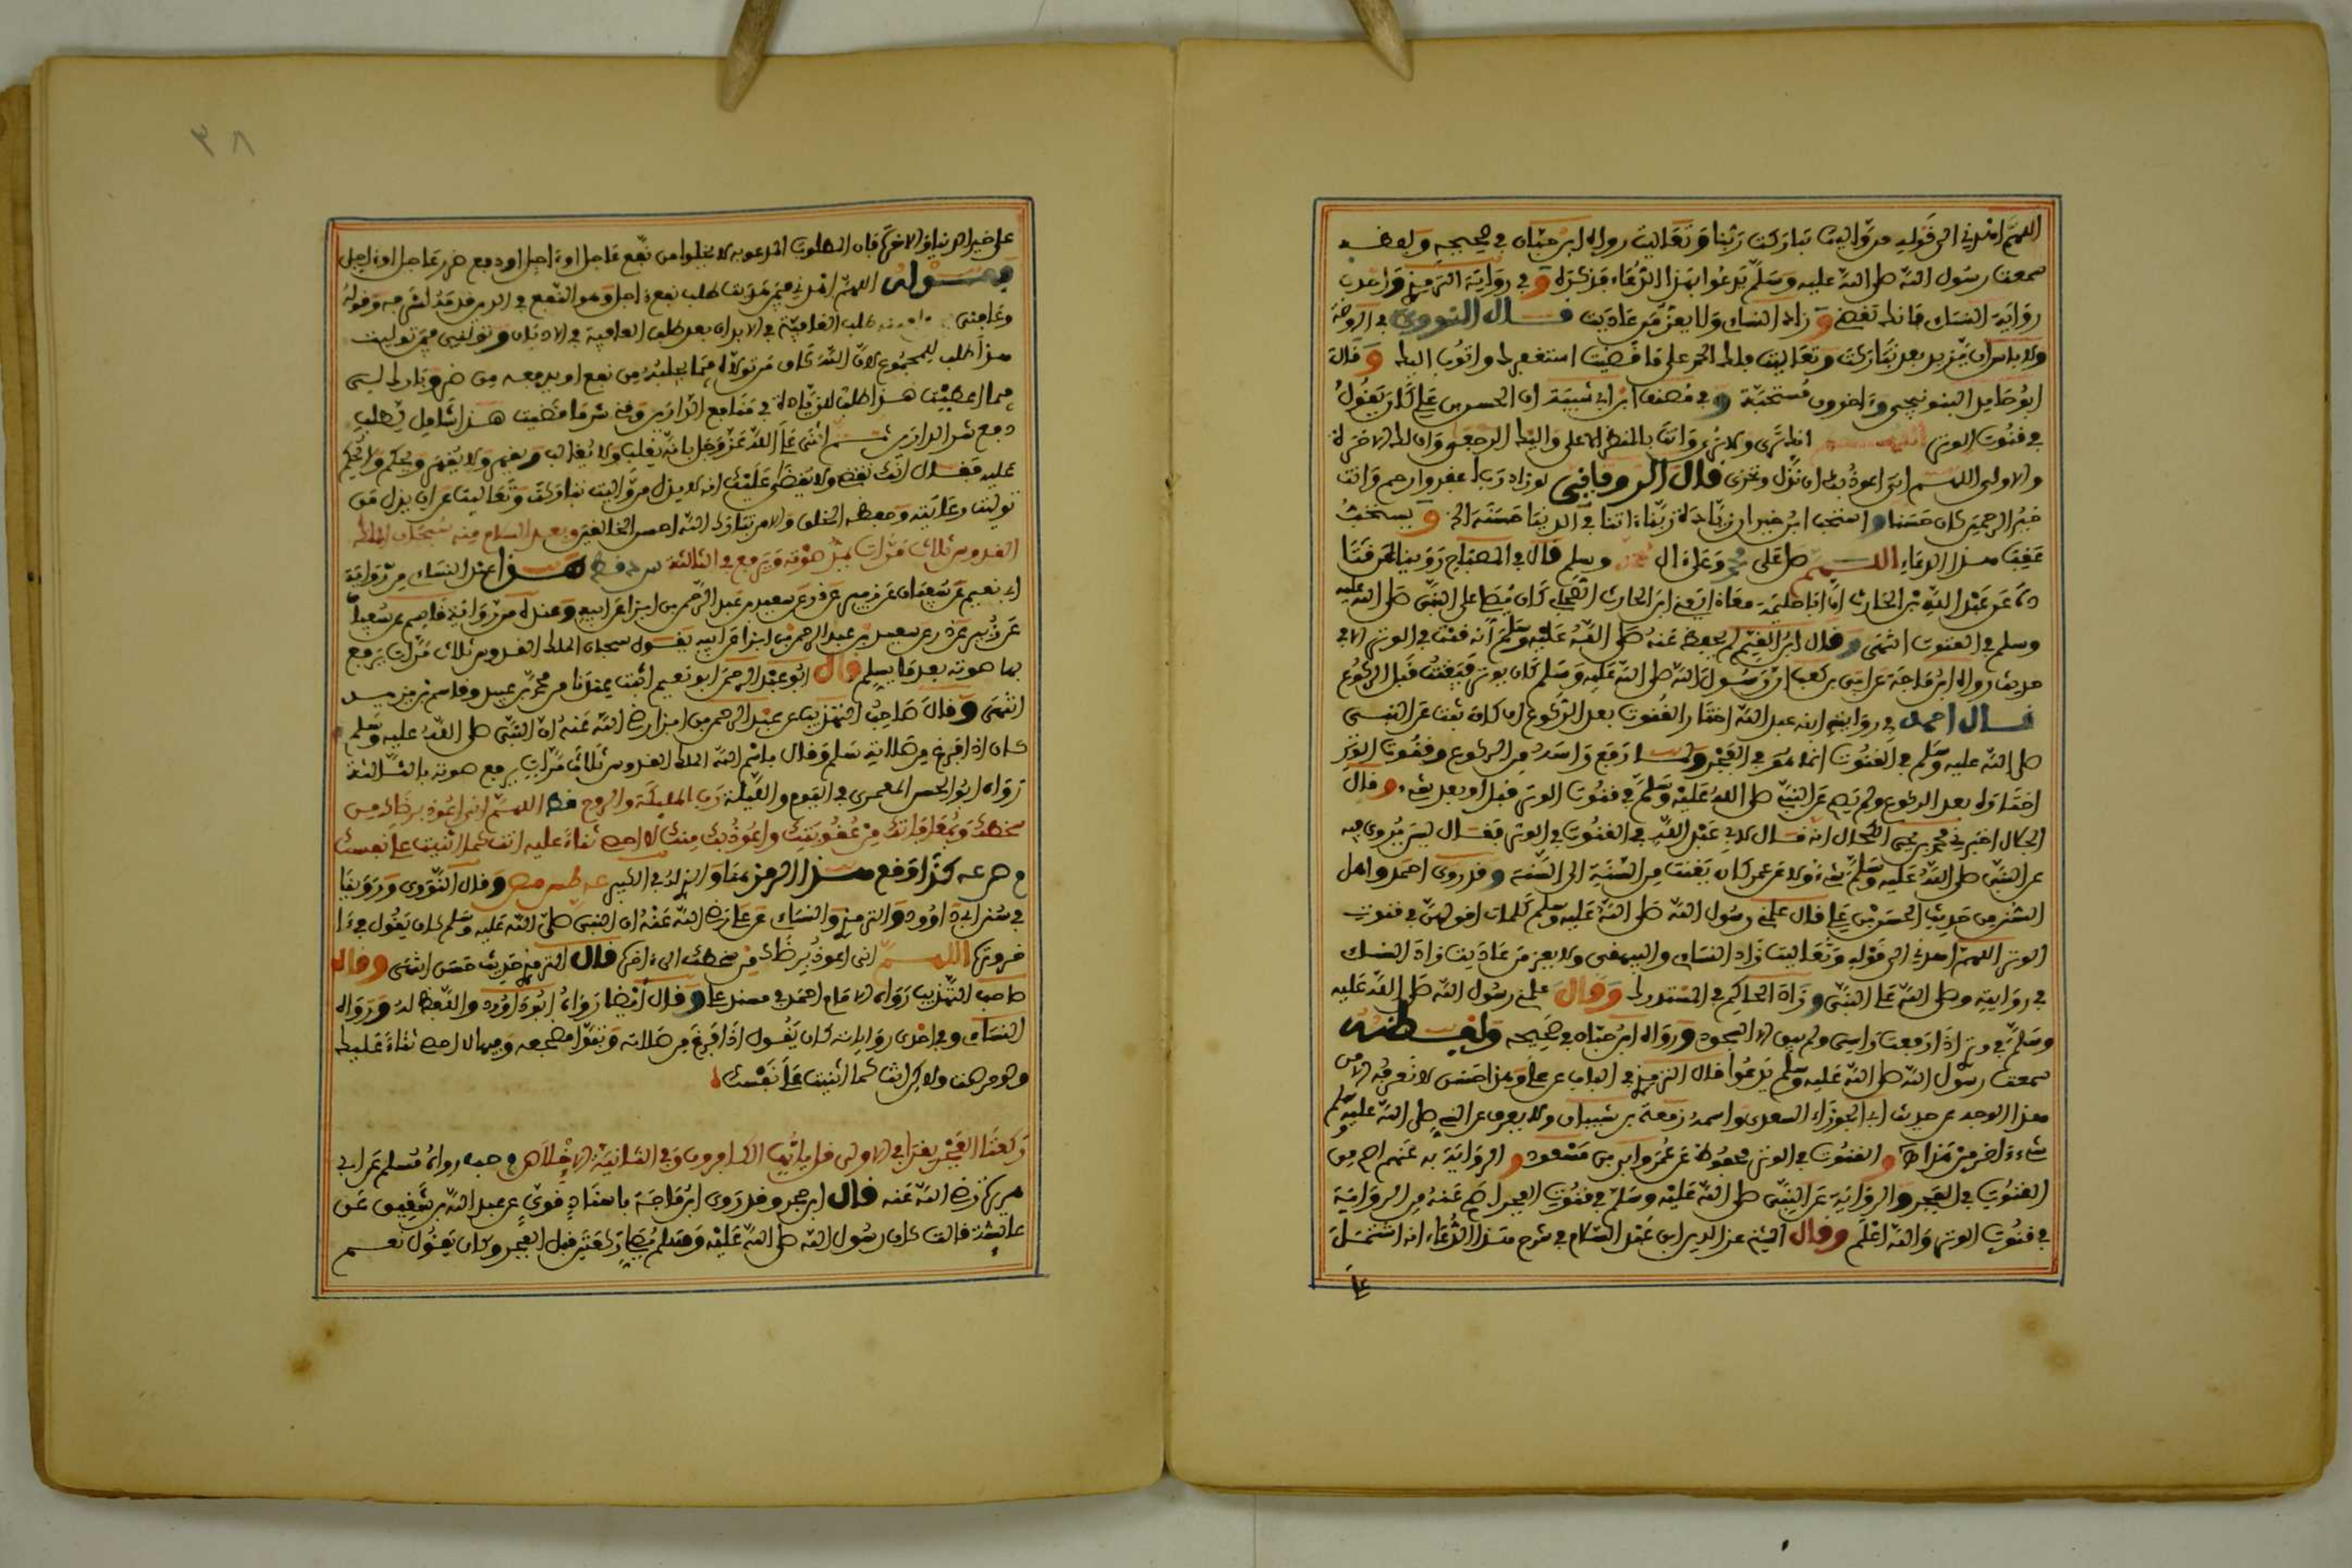 اللهم اهدني الى قوله من واليت تباركت ربنا وتعاليت رواه ابن حبان في صحيحه ولفظه
سمعت رسول الله صلى الله عليه وسلم يدعوا بهذا الدعاء فذكره وفي رواية الترمذي واحدى
رواية النساى فانك تقضي وزاد النساى ولا يعز من عاديت قال النووي في الروضة
ولا باس ان يزيد بعد تباركت وتعاليت فلك الحمد على ما قضيت استغفرك واتوب اليك وقال
ابو حامد البندنيجي وءاخرون مستحبة وفي مصنف ابن ابي شيبة ان الحسن بن علي كان يقول
في قنوت الوتر اللهم انك ترى ولا ترى وانت بالمنظر الاعلى واليك الرجعى وان لك الاخرة
والاولى اللهم اني اعوذ بك ان نذل ونخزى قال الروياني لو زاد رب اغفر وارحم وانت
خير الراحمين كان حسنا واستحب ابن خيران زيادة ربنا ءاتنا في الدنيا حسنة الخ ويستحب
عقب هذا الدعاء اللهم صل على محمد وعلى ءال محمد وسلم قال في المصباح
عن عبد الله بن الحارث ان ابا حليمة معاذ ابن الحارث كان يصلي على النبي صلى الله عليه
وسلم في القنوت انتهى وقال ابن القيم لم يحفظ عنه صلى الله عليه وسلم أنه قنت في الوتر الا في
حديث رواه ابن ماجة عن ابي بن كعب ان رسول الله صلى الله عليه وسلم كان يوتر فيقنت قبل الركوع
قال احمد في رواية ابنه عبد الله اختار القنوت بعد الركوع ان كل شىء ثبت عن النبي
صلى الله عليه وسلم في القنوت انما هو في الفجر ولما رفع راسه من الركوع وقنوت الوتر
اختاره بعد الركوع ولم يصح عن النبي صلى الله عليه وسلم في قنوت الوتر قبل او بعد شىء وقال
الخلال اخبرني محمد بن يحيى الكحال انه قال لابي عبد الله في القنوت في الوتر فقال ليس يروى فيه
عن النبي صلى الله عليه وسلم شىء ولكن عمر كان يقنت من السنة الى السنة وقد روى احمد واهل
السنن من حديث الحسن بن علي قال علمني رسول الله صلى الله عليه وسلم كلمات اقولهن في قنوت
الوتر اللهم اهدني الى قوله وتعاليت زاد النساى والبيهقي ولا يعز من عاديت زاد النساى
في روايته وصلى الله على النبي وزاد الحاكم في المستدرك وقال علمني رسول الله صلى الله عليه
وسلم في وتري اذا رفعت راسي ولم يبق الا السجود ورواه ابن حبان في صحيحه ولفظه
سمعت رسول الله صلى الله عليه وسلم يدعوا قال الترمذي في الباب عن علي وهذا حسن لا نعرفه الا من
هذا الوجه من حديث ابي الجوزاء السعدي واسمه ربيعة بن شيبان ولا يعرف عن النبي صلى الله عليه وسلم
شىء اخر من هذا والقنوت في الوتر محفوظ عن عمر وابن مسعود والرواية به عنهم اصح من
القنوت في الفجر والرواية عن النبي صلى الله عليه وسلم في قنوت الفجر اصح عنه من الرواية
في قنوت الوتر والله اعلم وقال الشيخ عز الدين ابن عبد السلام في شرح هذا الدعاء انه اشتمل
على
٣٨
على خير الدنيا والاخرة فان المطلوب المدعو به لا يخلوا من نفع عاجل او ءاجل او دفع ضرر عاجل او ءاجل
فقوله اللهم اهدني فيمن هديت طلب نفع ءاجل وهو النفع في الدين وقوله
وعافني طلب العافية في الابدان بعد طلب العافية في الاديان وتولني فيمن توليت
هذا طلب للمجموع لان الله كاف من تولاه فيما يجلبه من نفع او يدفعه من ضر وبارك لي
فيما اعطيت هذا طلب للزيادة في منافع الدارين وقني شر ما قضيت هذا شامل يطلب
دفع شر الدارين ثم اثنى على الله عز وجل بانه يغلب ولا يغالب ويقهر ولا يقهر ويحكم ولا يحكم
عليه فقال انك تقضي ولا يقضى عليك انه لا يذل من واليت تباركت وتعاليت عن ان يذل من
توليت رعايته وحفظه الخلق والامر تبارك الله احسن الخالقين وبعد السلام منه سبحان الملك
القدوس ثلاث مرات يمد صوته ويرفع في الثالثة هذا عند النساى من رواية
ابي نعيم عن سفيان عن زبيد عن ذر عن سعيد بن عبد الرحمن بن ابزى عن ابيه وعنده من رواية قاسم عن سفيان
عن زبيد عن ذر عن سعيد بن عبد الرحمن بن ابزى عن ابيه يقول سبحان الملك القدوس ثلاث مرات يرفع
بها صوته بعد ما يسلم قال ابو عبد الرحمن ابو نعيم اثبت عندنا من محمد بن عبيد وقاسم بن يزيد
انتهى وقال صاحب التهذيب عن عبد الرحمن بن ابزى رضي الله عنه ان النبي صلى الله عليه وسلم
كان اذا فرغ من صلاته سلم وقال باسم الله الملك القدوس ثلاث مرات يرفع صوته بالثالثة
رواه ابو الحسن المعمري في اليوم والليلة رب الملىكة والروح قط اللهم اني اعوذ برضاك من
سخطك وبمعافاتك من عقوبتك واعوذ بك منك لا احصي ثناء عليك انت كما اثنيت على نفسك
كذا وقع هذا الرمز وقال النووي وروينا
في سنن ابي داوود والترمذي والنساى عن علي رضي الله عنه ان النبي صلى الله عليه وسلم كان يقول في ءا
خر وتره اللهم اني اعوذ برضاك من سخطك الى ءاخره قال الترمذي حديث حسن انتهى وقال
صاحب التهذيب رواه الامام احمد في مسند علي وقال ايضا رواه ابو داوود واللفظ له ورواه
النساى وفي احدى رواياته كان يقول اذا فرغ من صلاته وتبوا مضجعه وفيها لا احصي ثناء عليك
ولو حرصت ولكن انت كما اثنيت على نفسك
ركعتا الفجر يقرا في الاولى قل يايها الكافرون وفي الثانية الاخلاص م حب رواه مسلم عن ابي
هريرة رضي الله عنه قال ابن حجر وقد روى ابن ماجة باسناد قوي عن عبد الله بن شقيق عن
عائشة قالت كان رسول الله صلى الله عليه وسلم يصلي ركعتين قبل الفجر وكان يقول نعم